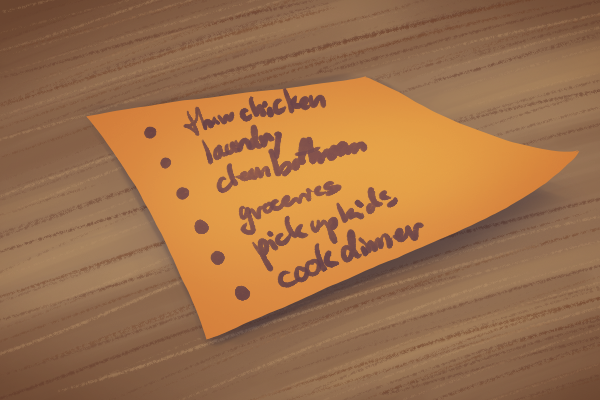 thaw chicken
laundry
clean bathroom
groceries
pick up kids
cook dinner